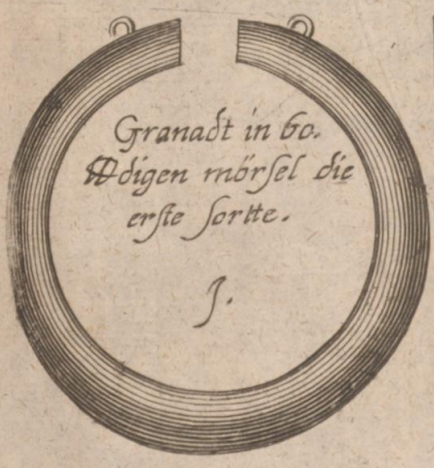 Granadt in 60.
℔digen mörſel die
erſte ſortte.
J.